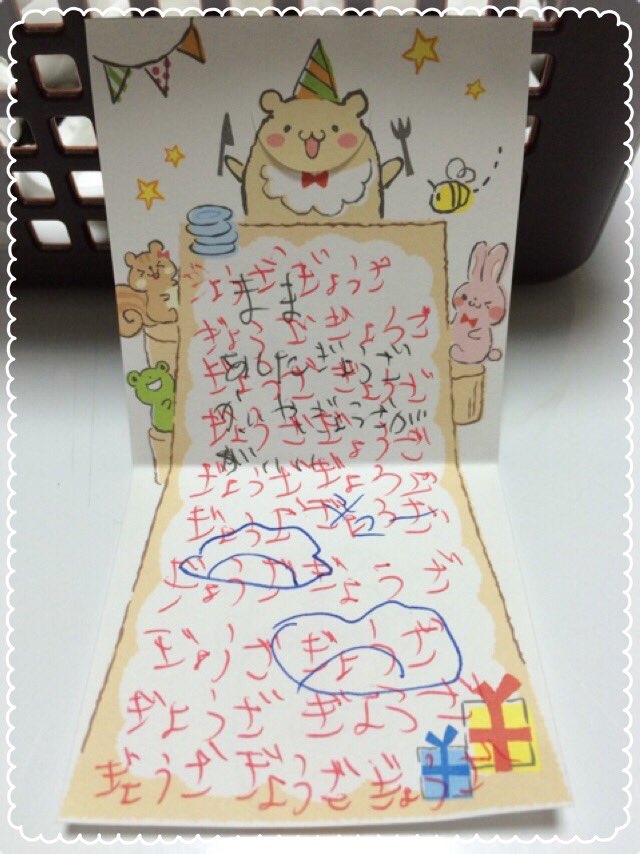 ぎょうざ ぎょうざ
まま
ぎょうざ ぎょうざ
あしたぎょうざ
ぎょうざ ぎょうざ
ぎょうざが
ぎょうざ ぎょうざ
がいい
ぎょうざ ぎょうざ
ぎょうざ ぎょうざ
ぎょうざ ぎょうざ
ぎょうざ ぎょうざ
ぎょうざ ぎょうざ
ぎょうざ ぎょうざ ぎょうざ